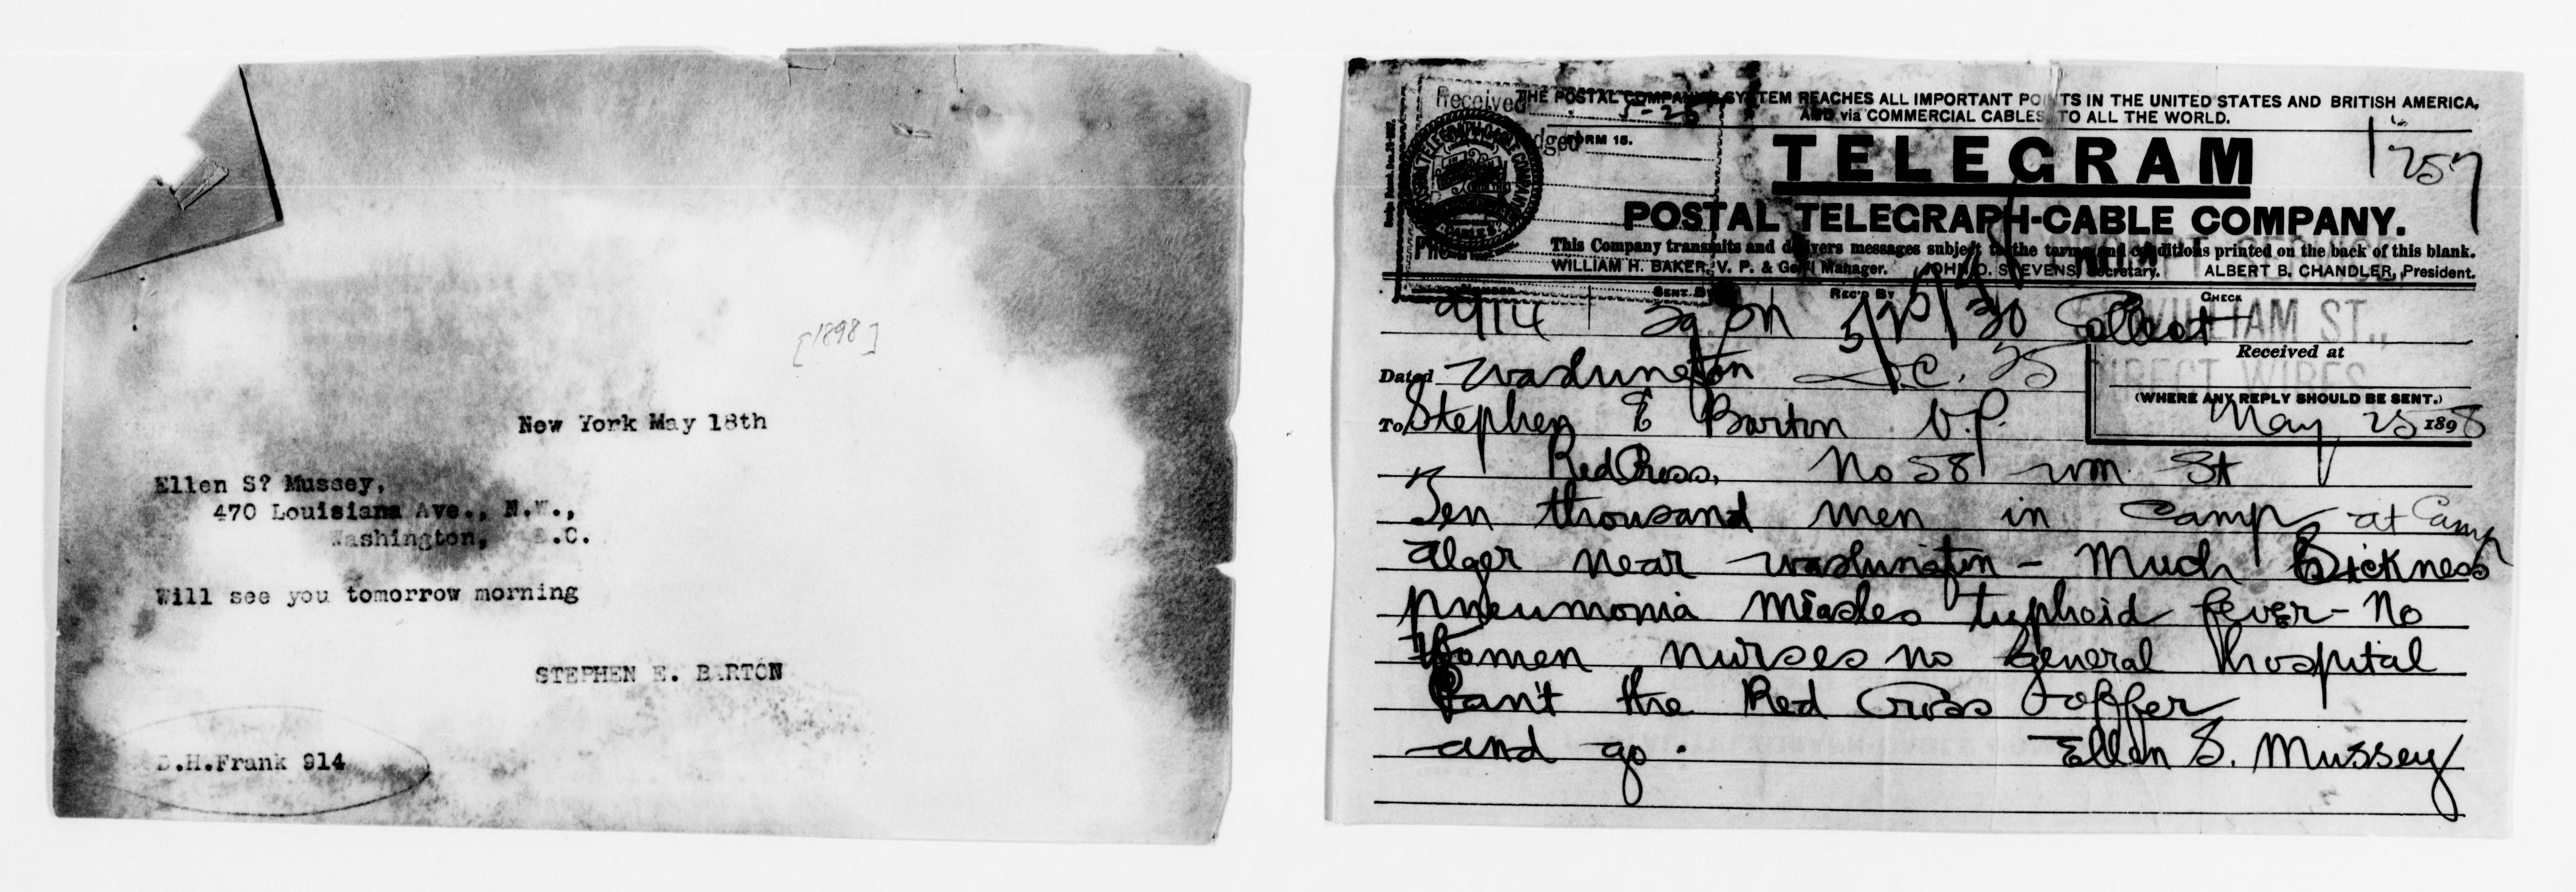 [1898]
New York May 18th
Ellen S? Mussey,
470 Louisiana Ave., N.W.,
Washington, D.C.
Will see you tomorrow morning
STEPHEN E. BARTON
D.H.Frank 914
Received
THE POSTAL COMPANY'S SYSTEM REACHES ALL IMPORTANT POINTS IN THE UNITED STATES AND BRITISH AMERICA,
AND via COMMERCIAL CABLES TO ALL THE WORLD.
FORM 16.
TELEGRAM
1257
POSTAL TELEGRAPH-CABLE COMPANY.
This Company transmits and delivers messages subject to the terms and conditions printed on the back of this blank.
WILLIAM H. BAKER, V. P. & Gen'l Manager. JOHN O. STEVENS, Secretary. ALBERT B. CHANDLER, President.
SENT BY REC'D BY CHECK
WILLIAM ST.,
Collect
Received at
DIRECT WIRES
Dated Washington D.C. 25
(WHERE ANY REPLY SHOULD BE SENT.)
To Stephen E Barton V.P. May 25 1898
Red Cross, No 58 Wm St
Ten thousand men in camp at Camp
Alger near Washington - Much Sickness
pneumonia Measles typhoid fever - No
Women nurses no General hospital
Can't the Red Cross offer
and go.
Ellen S. Mussey